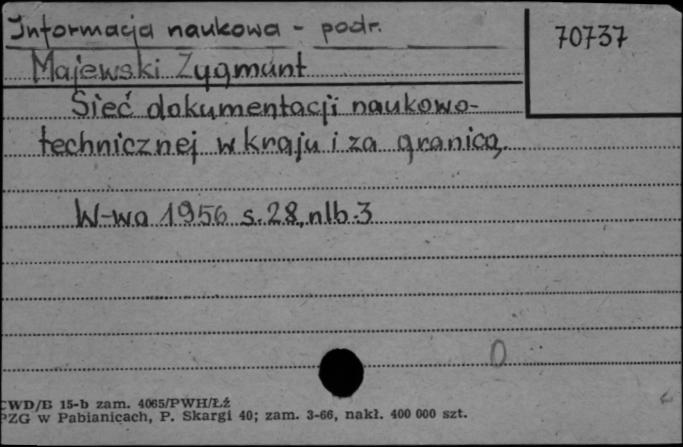 Informacja naukowa - podr.
70737
Majewski Zygmunt
Sieć dokumentacji naukowo-
technicznej w kraju i za granicą.
W-wa 1956 s. 28, nlb. 3
CWD/B 15-b zam. 4065/PWH/Łż
PZG w Pabianicach, P. Skargi 40; zam. 3-66, nakł. 400 000 szt.